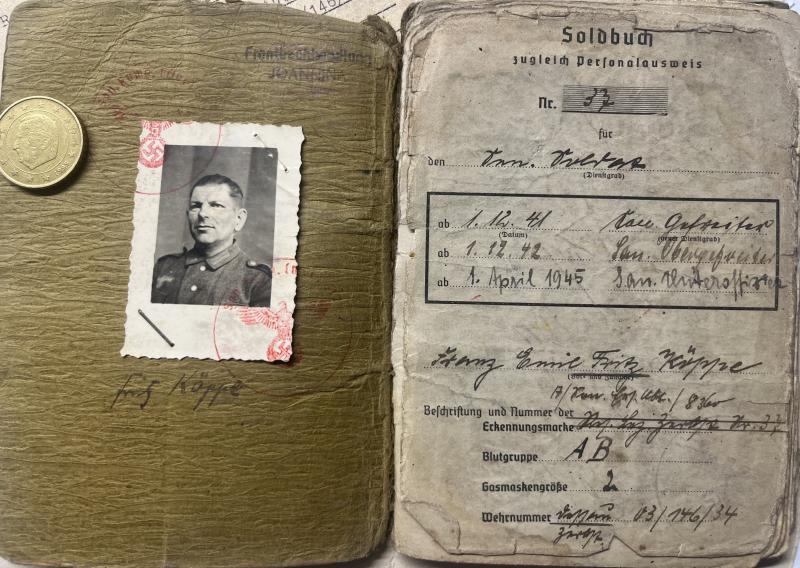 Frontbuchhandlung
JOANNINA
Fritz Köppe
Soldbuch
zugleich Personalausweis
Nr. 37
für
den San. Soldat
(Dienstgrad)
ab 1.12.41 San. Gefreiter
(Datum) (neuer Dienstgrad)
ab 1.12.42 San. Obergefreiter
ab 1. April 1945 San. Unteroffizier
Franz Emil Fritz Köppe
(Vor- und Zuname)
San. Ers. Abt. / 8360
Beschriftung und Nummer der
Erkennungsmarke Zerbst Nr. 37
Blutgruppe AB
Gasmaskengröße 2
Wehrnummer Dessau 03/146/34
Zerbst